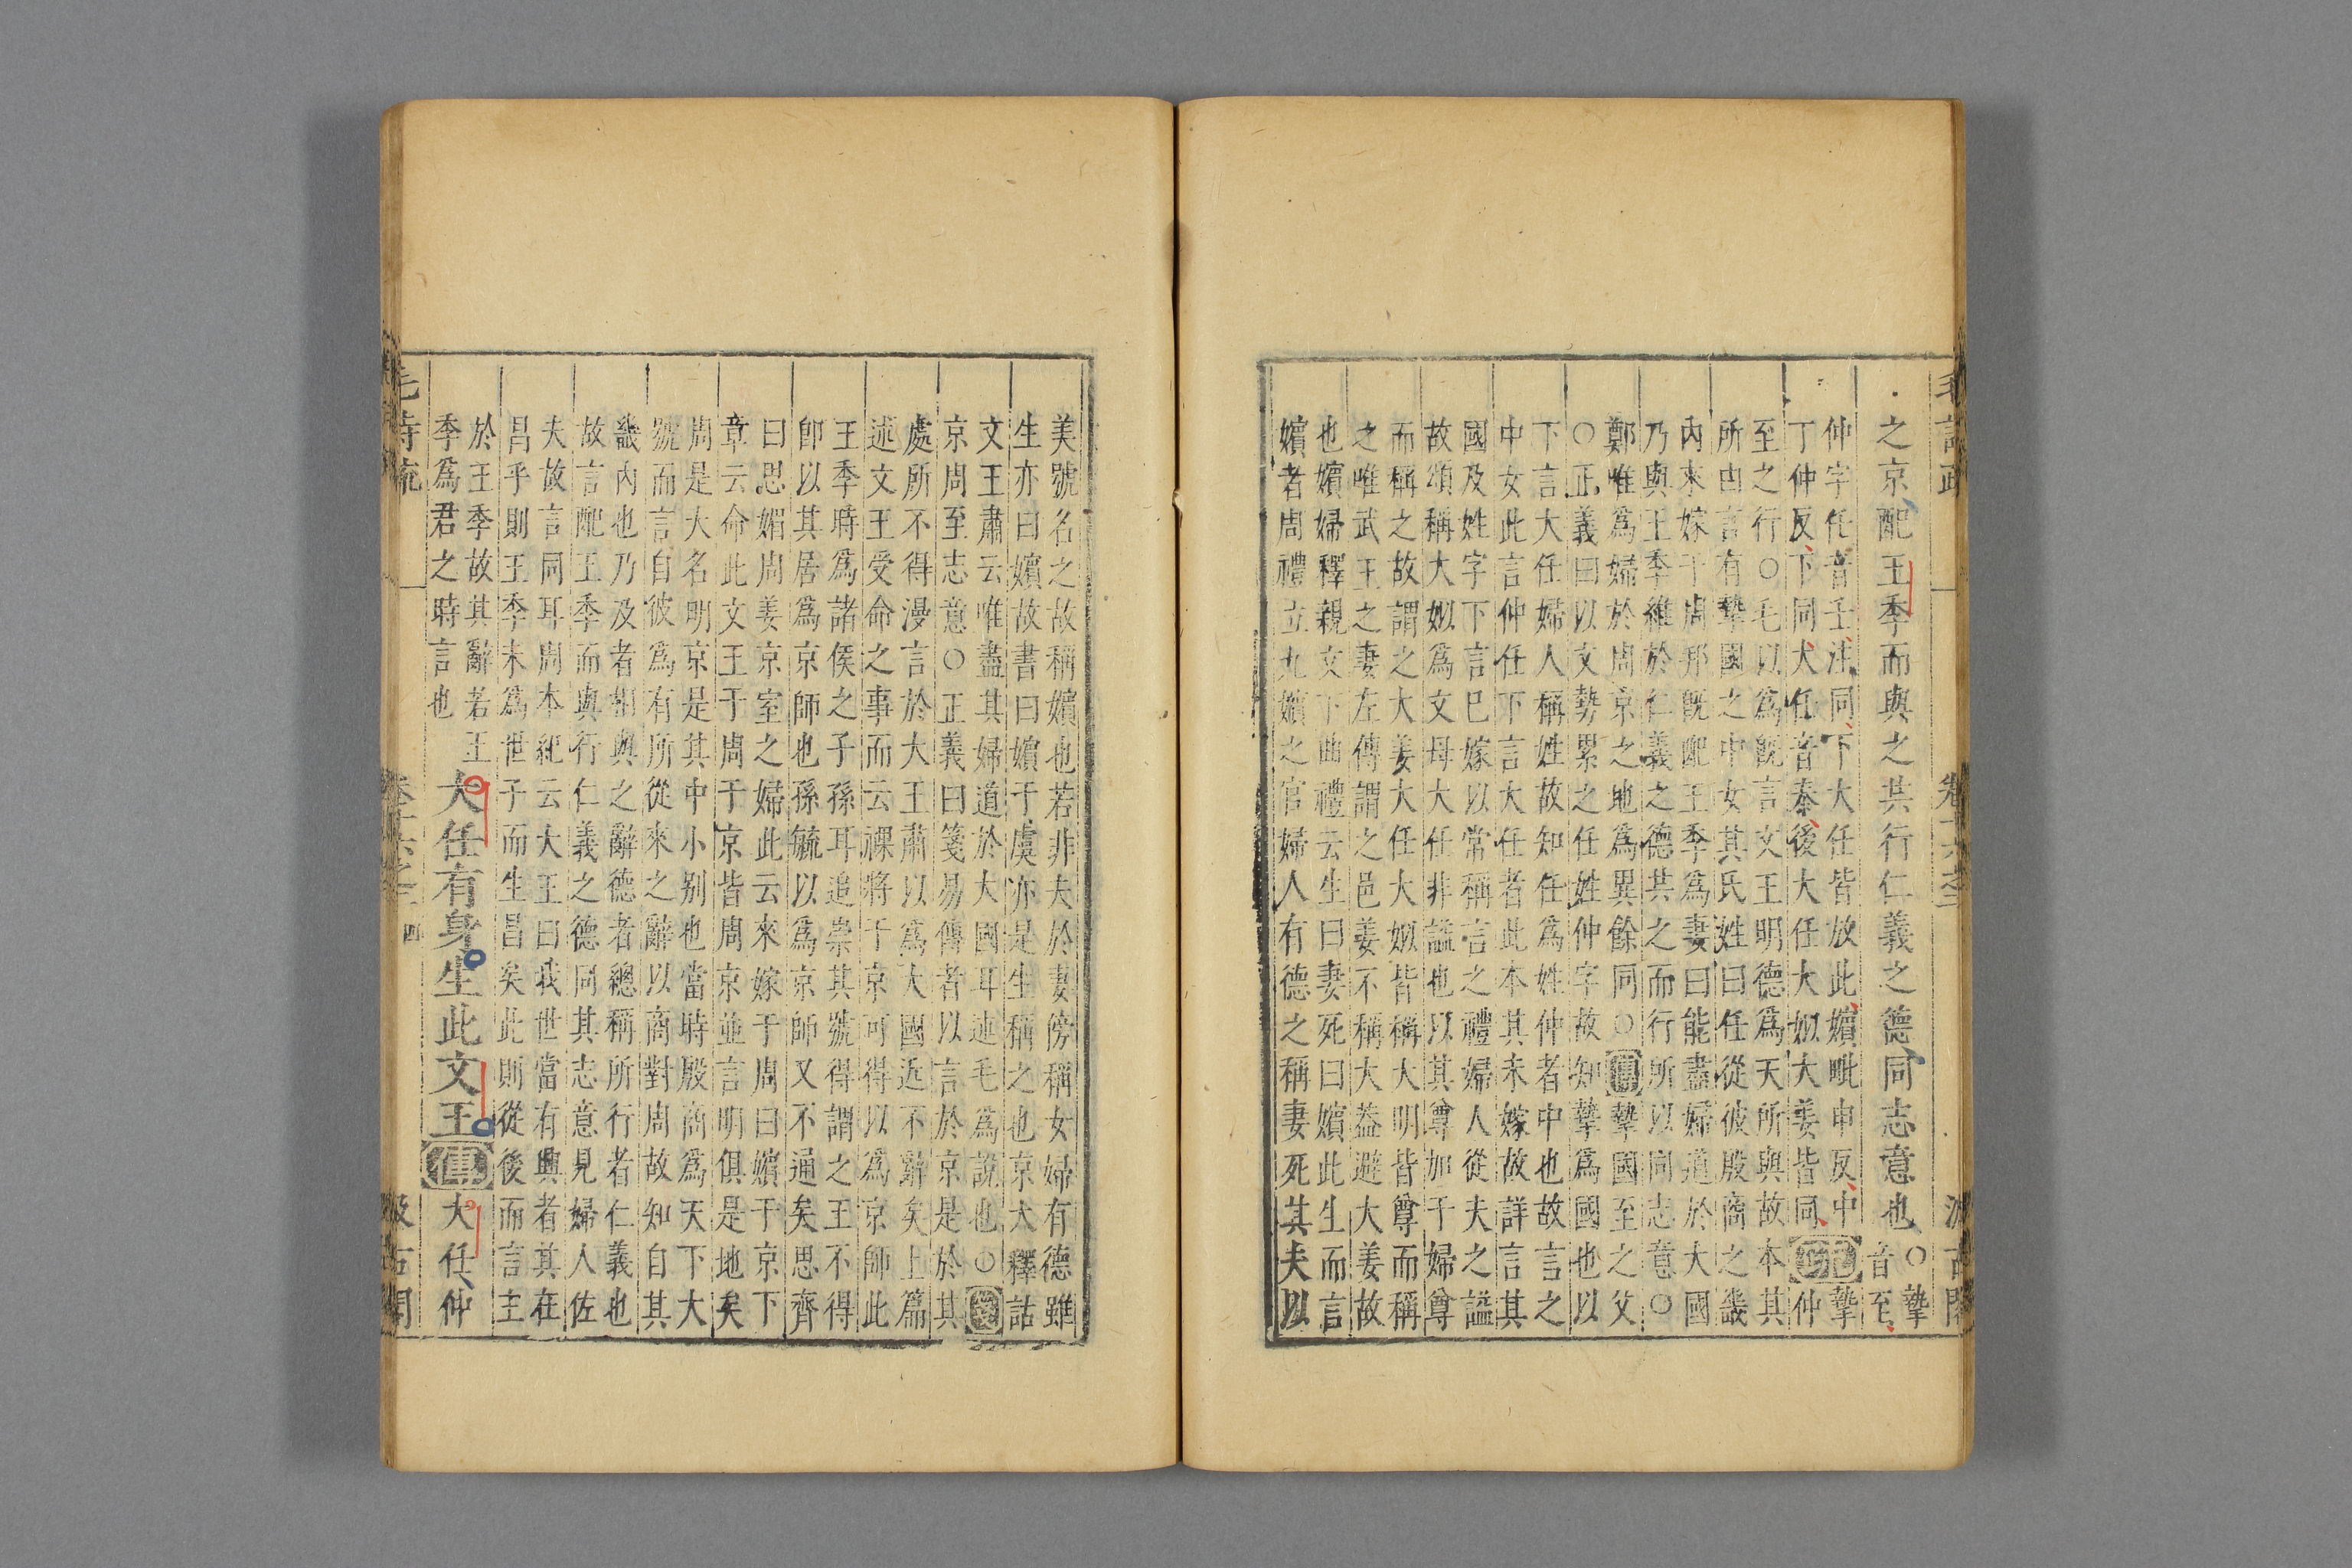 毛詩疏 卷十六之二 汲古閣
之京配王季而與之共行仁義之德同志意也○摯
音至
仲字任音壬注同下大任皆放此嬪毗申反中
丁仲反下同大任音泰後大任大姒大姜皆同疏摯仲
至之行○毛以為既言文王明德為天所與故本其
所由言有摯國之中女其氏姓曰任從彼殷商之畿
內來嫁于周邦既配王季為妻曰能盡婦道於大國
乃與王季維於仁義之德其之而行所以同志意○
鄭唯為婦於周京之地為異餘同○傳摯國至之父
○正義曰以文勢累之任姓仲字故知摯為國也以
下言大任婦人稱姓故知任為姓仲者中也故言之
中女此言仲任下言大任者此本其未嫁故詳言其
國及姓字下言巳嫁以常稱言之禮婦人從夫之謚
故頌稱大姒為文母大任非謚也以其尊加于婦尊
而稱之故謂之大姜大任大姒皆稱大明皆尊而稱
之唯武王之妻左傳謂之邑姜不稱大蓋避大姜故
也嬪婦釋親文下曲禮云生曰妻死曰嬪此生而言
嬪者周禮立九嬪之官婦人有德之稱妻死其夫以
美號名之故稱嬪也若非夫於妻傍稱女婦有德雖
生亦曰嬪故書曰嬪于虞亦是生稱之也京大釋詁
文王肅云唯盡其婦道於大國耳述毛為說也○箋
京周至志意○正義曰箋易傳者以言於京是於其
處所不得漫言於大王肅以為大國近不辭矣上篇
述文王受命之事而云祼將于京可得以為京師此
王季時為諸侯之子孫耳追崇其號得謂之王不得
卽以其居為京師也孫毓以為京師又不通矣思齊
曰思媚周姜京室之婦此云來嫁于周曰嬪于京下
章云命此文王于周于京皆周京並言明俱是地矣
周是大名明京是其中小别也當時殷商為天下大
號而言自彼為有所從來之辭以商對周故知自其
畿內也乃及者相與之辭德者總稱所行者仁義也
故言配王季而與行仁義之德同其志意見婦人佐
夫故言同耳周本紀云大王曰我世當有興者其在
昌乎則王季未為世子而生昌矣此則從後而言主
於王季故其辭若王
季為君之時言也
大任有身生此文王傳大任仲
毛詩疏 卷十六之二 四 汲古閣